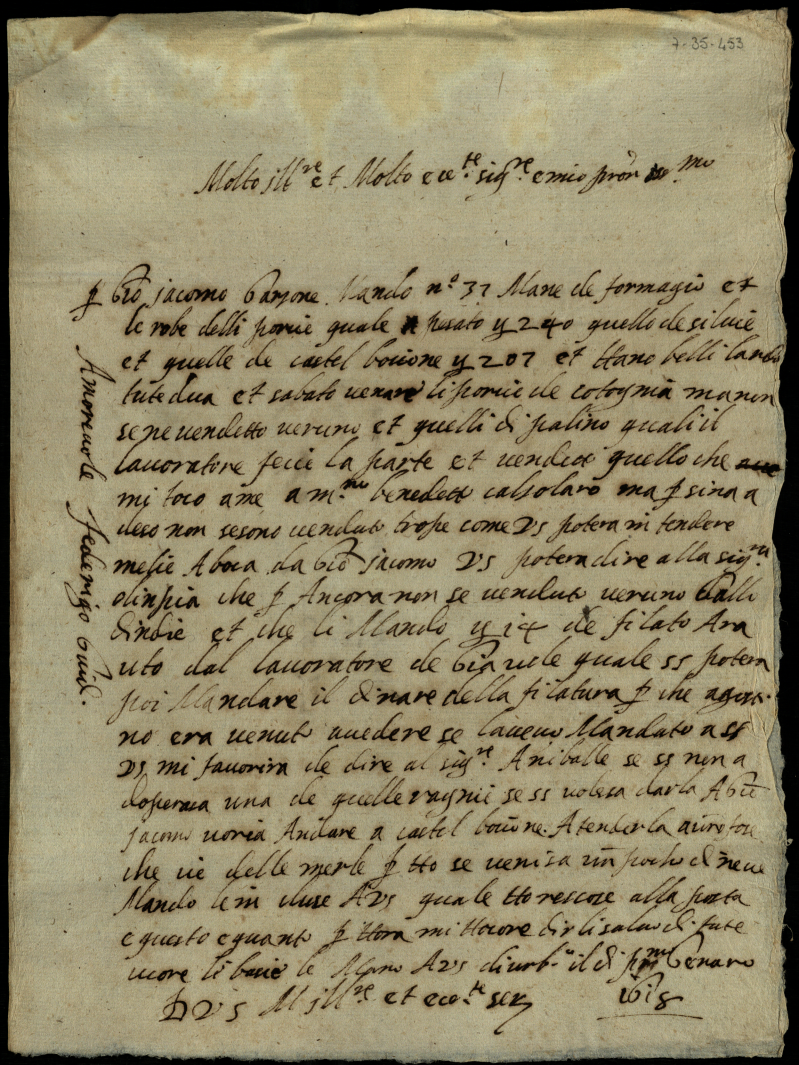 7-35-453
Molto Ill.re et Molto ecc.te sig.re e mio pron mo
p Gio jacomo Garzone Mando n.o 37 Mane de formagio et
le robe delli porcie quale pesato 240 quello de silvie
et quelle de castel bocione 207 et belli
tute dua et sabato venare li porcie de cotognia ma non
se ne vendetto veruno et quelli di palino quali il
lavoratore fecie la parte et vendett quello che
mi toco a me a m. benedett calsolaro ma p sina a
deso non se sono vendute trope come VS potera intendere
mesie A boca da Gio jacomo VS potera dire alla sig.ra
olinpia che p Ancora non se venduto veruno dalli
dindie et che li Mando 14 de filato Ara
uto dal lavoratore de quale ss potera
poi Mandare il dinare della filatura p che agosti
no era venuto avedere se lavevo Mandato a ss
VS mi favorira de dire al sig.re Aniballe se ss non a
doperava una de quelle ragnie se ss volesa darla A Gio
jacomo voria Andare a castel bocione A tenderla
che vie delle merle p tto se venisa un pocho di neve
Mando le in cluse A VS quale resose alla posta
e questo e quanto p mi dirli salvo di tute
core li bacie le Mano A VS di urb.o il di p.mo Genaro
1618
D VS M Ill.re et ecc.te ser
Amorevole Federigo